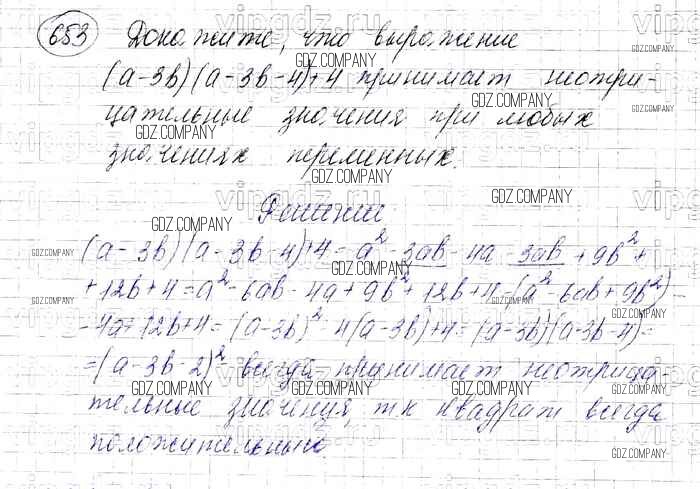 653 Докажите, что выражение
(a-3b)(a-3b-4)+4 принимает неотри-
цательные значения при любых
значениях переменных.
Решении
(a-3b)(a-3b-4)+4=a²-3ab-4a-3ab+9b²+
+12b+4=a²-6ab-4a+9b²+12b+4=(a²-6ab+9b²)-
-4a+12b+4=(a-3b)²-4(a-3b)+4=(a-3b)(a-3b-4)=
=(a-3b-2)² всегда принимает неотрица-
тельные значения, тк квадрат всегда
положительный.